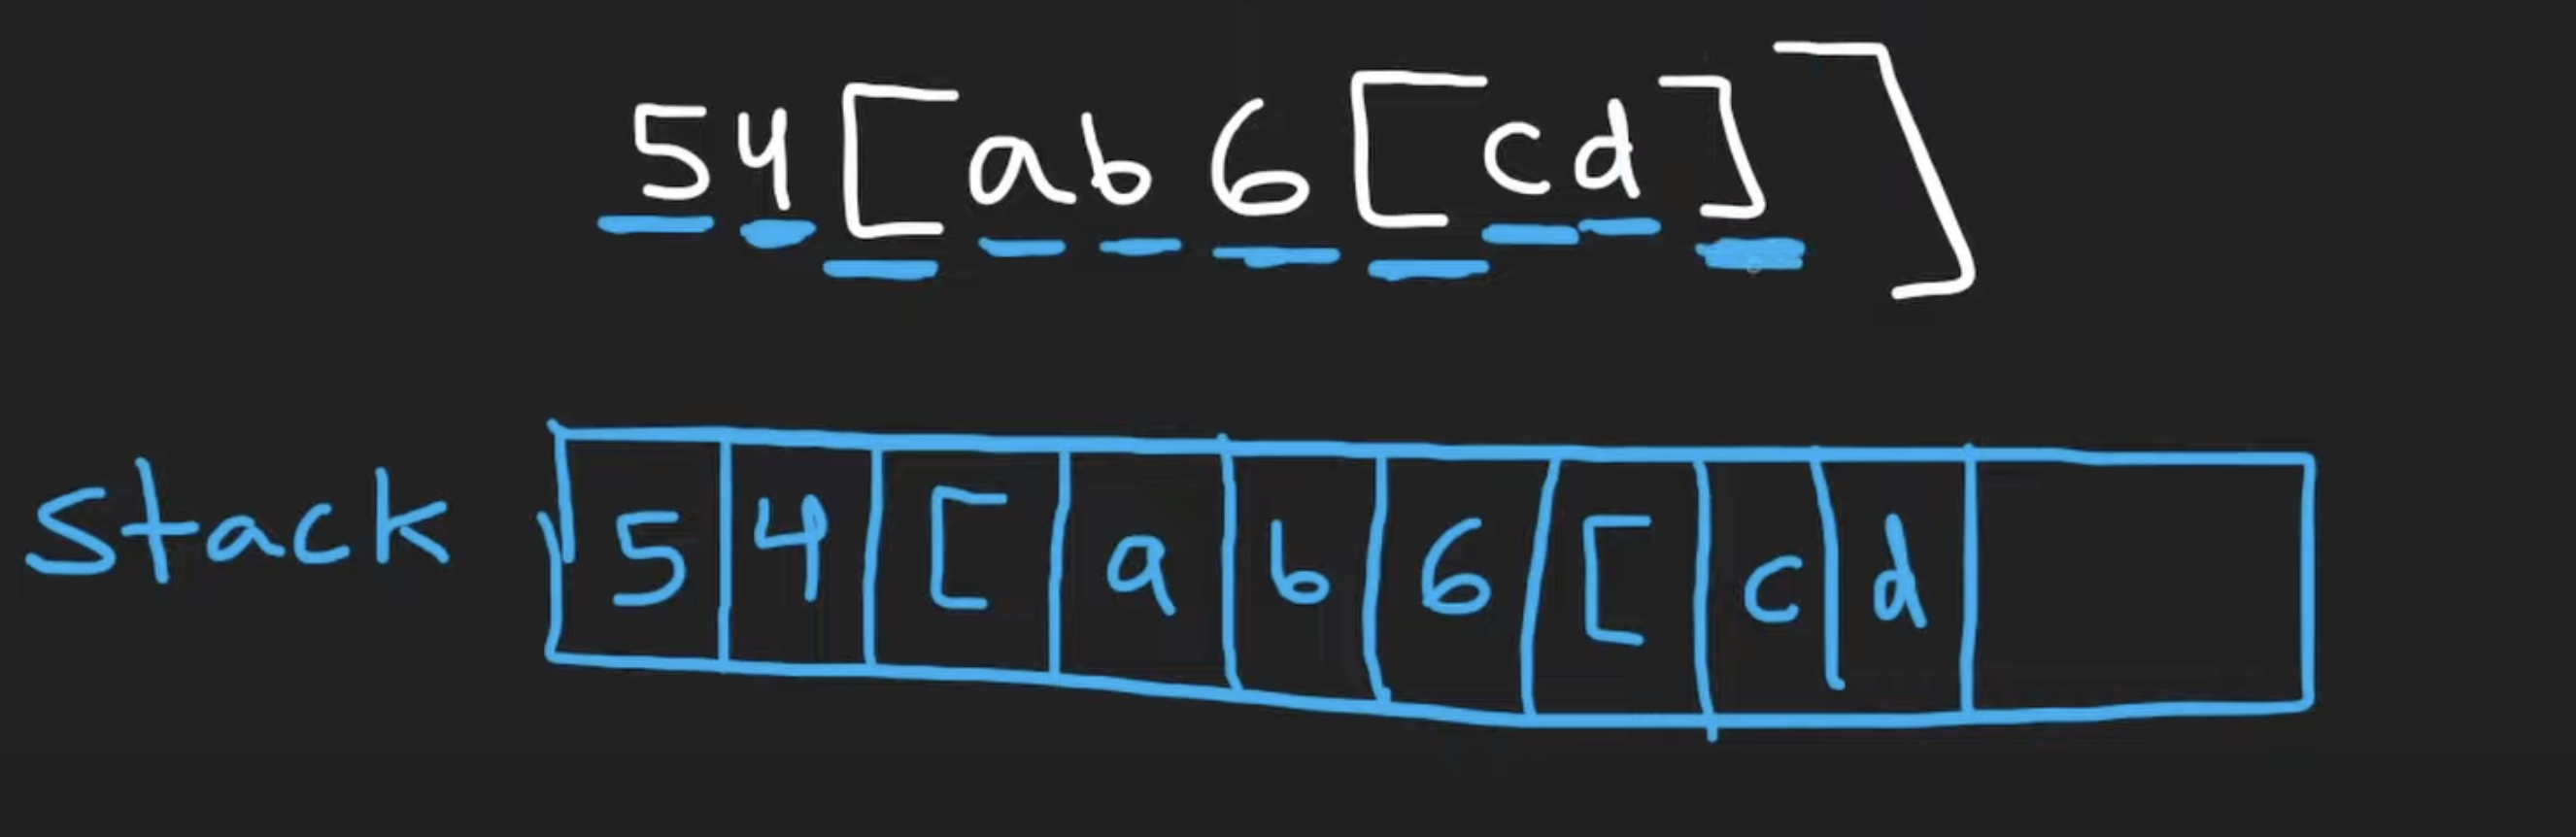 54[ab6[cd]]
stack 5 4 [ a b 6 [ c d